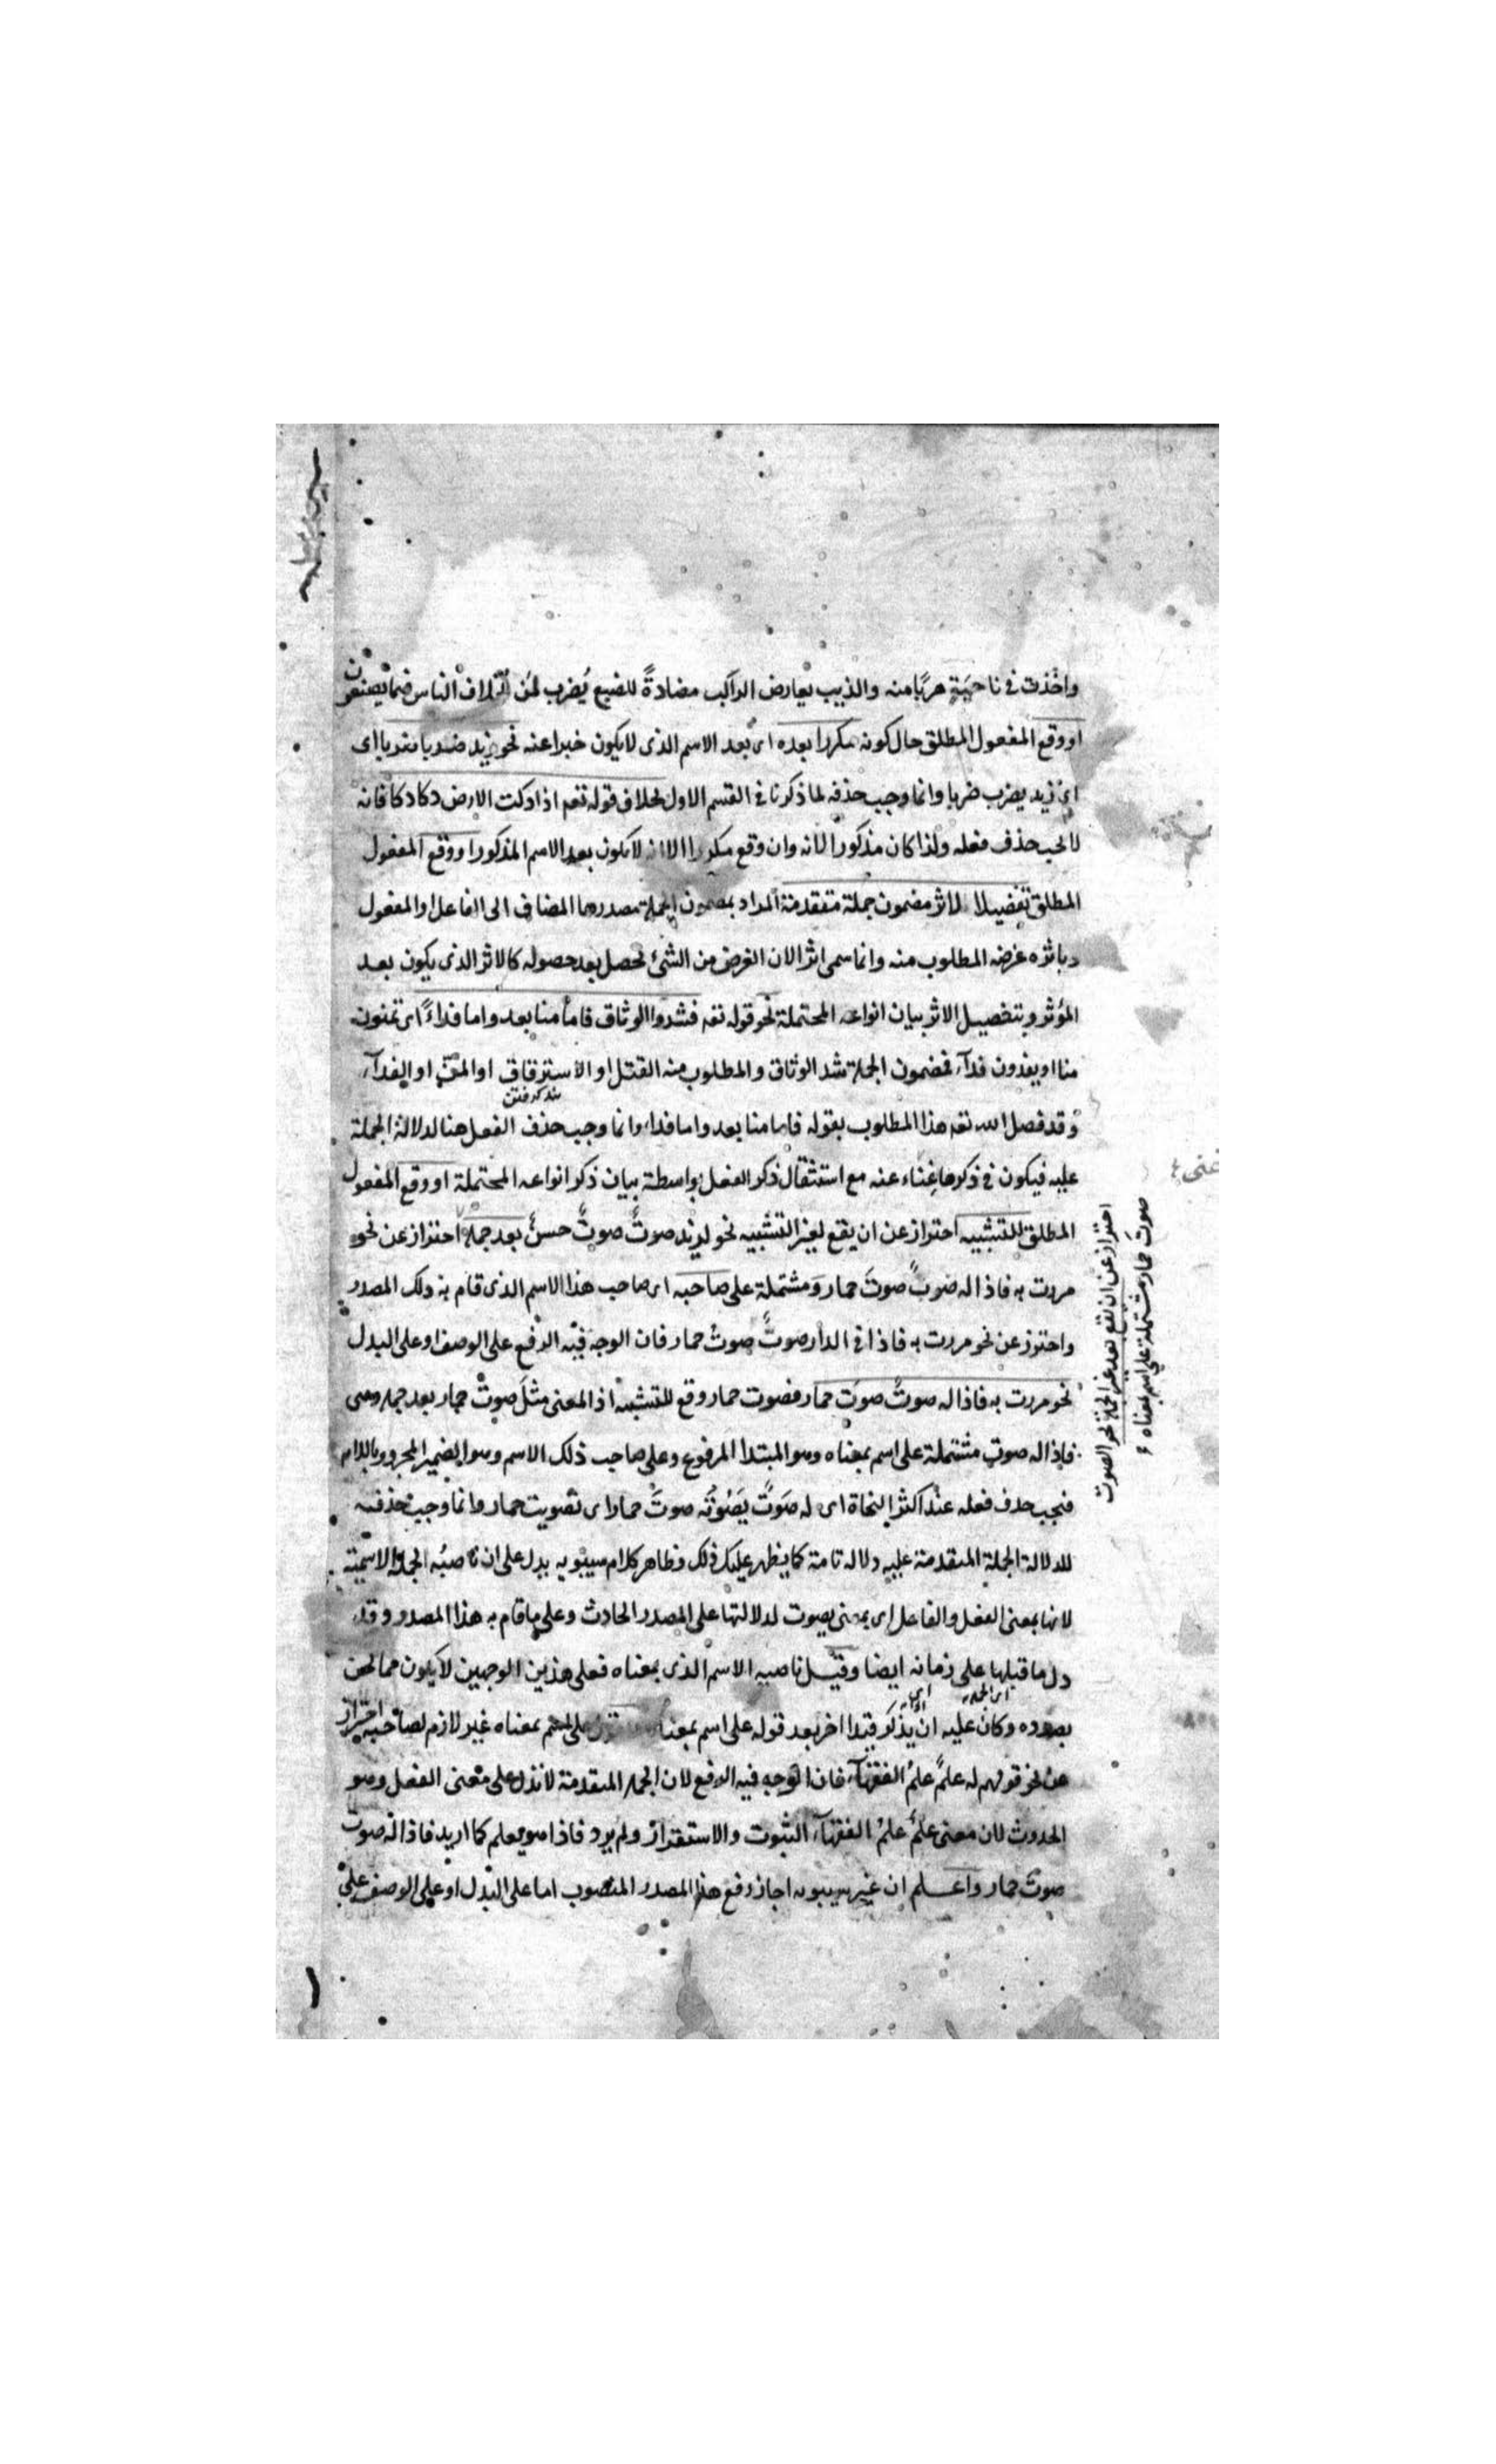 واخذت في ناحيةٍ هربًا منه والذيب يعارض الراكب مضادةً للضبع يُضرب لمن الناس فيما يصنعون
او وقع المفعول المطلق حال كونه مكررا بعده اى بعد الاسم الذى لا يكون خبرا عنه نحو زيد ضربا ضربا اى
اى زيد يضرب ضربا وانما وجب حذفه لما ذكرنا في القسم الاول بخلاف قوله تعم اذا دكت الارض دكا دكا فانه
لا يجب حذف فعله ولذا كان مذكورا لانه وان وقع مكررا الا انه لا يكون بعد الاسم المذكور او وقع المفعول
المطلق تفصيلا لاثر مضمون جملة متقدمة المراد بمضمون الجملة مصدرها المضاف الى الفاعل او المفعول
وباثره غرضه المطلوب منه وانما سمى اثرا لان الغرض من الشئ يحصل بعد حصوله كالاثر الذى يكون بعد
المؤثر وبتفصيل الاثر بيان انواعه المحتملة نحو قوله تعم فشدوا الوثاق فاما منا بعد واما فداءً اى تمنون
منا او يفدون فدآء فمضمون الجملة شد الوثاق والمطلوب منه القتل او الاسترقاق او المنّ او الفدآء
بنده گرفتن
وقد فصل الله تعم هذا المطلوب بقوله فاما منا بعد واما فداء وانما وجب حذف الفعل هنا لدلالة الجملة
عليه فيكون في ذكرها غناء عنه مع استثقال ذكر الفعل بواسطة بيان ذكر انواعه المحتملة او وقع المفعول
المطلق للتشبيه احتراز عن ان يقع لغير التشبيه نحو لزيد صوتٌ صوتٌ حسنٌ بعد جملة احتراز عن نحو
مررت به فاذا له صوت صوتَ حمار ومشتملة على صاحبه اى صاحب هذا الاسم الذى قام به ذلك المصدر
واحترز عن نحو مررت به فاذا في الدار صوتٌ صوتُ حمار فان الوجه فيه الرفع على الوصف او على البدل
نحو مررت به فاذا له صوتٌ صوتَ حمار فصوت حمار وقع للتشبيه اذ المعنى مثلَ صوت حمار بعد جملة وهى
فاذا له صوت مشتملة على اسم بمعناه وهو المبتدا المرفوع وعلى صاحب ذلك الاسم وهو الضمير المجرور باللام
فيجب حذف فعله عند اكثر النحاة اى له صَوتٌ يَصُوتُه صوتَ حمار اى تصويت حمار وانما وجب حذفه
للدلالة الجملة المتقدمة عليه دلالة تامة كما يظهر عليك ذلك وظاهر كلام سيبويه يدل على ان ناصبُه الجملة الاسمية
لانها بمعنى الفعل والفاعل اى بمعنى يصوت لدلالتها على المصدر الحادث وعلى ما قام به هذا المصدر وقد
دل ما قبلها على زمانه ايضا وقيل ناصبه الاسم الذى بمعناه فعلى هذين الوجهين لا يكون مما نحن
اى الجملة
بصدده وكان عليه ان يذكر قيدا اخر بعد قوله على اسم بمعناه بمعناه غير لازم لصاحبه احتراز
عن نحو قولهم له علمٌ علمُ الفقهآء فان الوجه فيه الرفع لان الجملة المتقدمة لا تدل على معنى الفعل وهو
الحدوث لان معنى علمٌ علمُ الفقهآء الثبوت والاستقرار ولم يرد فاذا هو يعلم كما اريد فاذا له صوت
صوتَ حمار واعلم ان غير سيبويه اجاز رفع هذا المصدر المنصوب اما على البدل او على الوصف على
احتراز عن ان يقع بعد غير الجملة نحو الصوت
صوتَ حمار مشتملة على اسم بمعناه
غنى